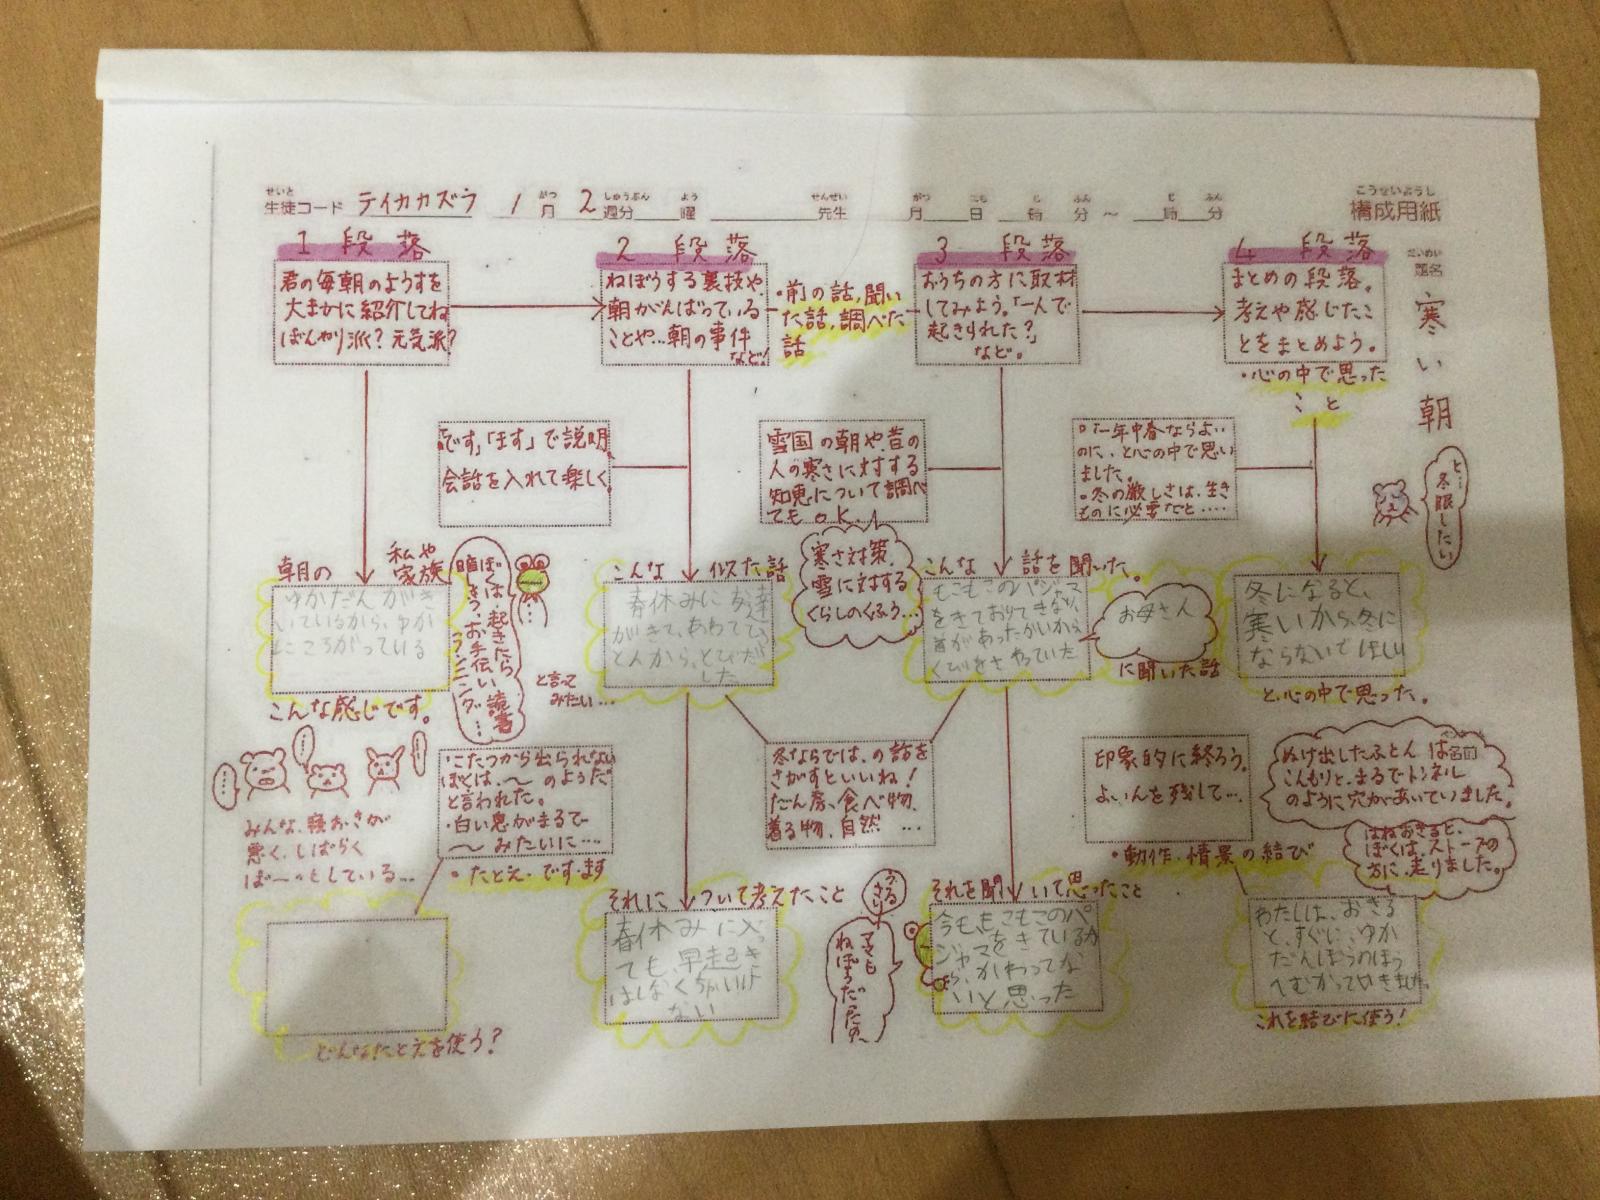 せいと
生徒コード テイカカズラ 1月 2週分 曜 先生 月 日 時 分 ～ 時 分
こうせいようし
構成用紙
だいめい
題名
寒い朝
1 段落
君の毎朝のようすを
大まかに紹介してね
ぼんやり派?元気派?
2 段落
ねぼうする裏技や、
朝がんばっている
ことや…朝の事件
など!
・前の話,聞い
た話,調べた
話
3 段落
おうちの方に取材
してみよう。「一人で
起きられた?」
など。
4 段落
まとめの段落。
考えや感じたこ
とをまとめよう。
・心の中で思った
こと
「です」「ます」で説明。
会話を入れて楽しく。
雪国の朝や、昔の
人の寒さに対する
知恵について調べ
てもOK!
一年中春ならよい
のに、と心の中で思い
ました。
・冬の厳しさは、生き
ものに必要だと……
と…
冬眠したい
朝の
私や
家族
ゆかだんがき
いているから、ゆか
にころがっている
こんな感じです。
ぼくは、起きたら
お手伝い、読書
ランニング…
と言って
みたい…
こんな 似た話
春休みに友達
がきて、あわてふ
とんから、とびだ
した
寒さ対策、
雪に対する
くらしのくふう…
こんな 話を聞いた。
もこもこのパジャマ
をきており
お母さん
に聞いた話
冬になると、
寒いから、冬に
ならないでほしい
と、心の中で思った。
みんな、寝おきが
悪く、しばらく
ぼーっとしている…
・こたつから出られない
ぼくは、～のようだ
と言われた。
・白い息がまるで
～みたいに…
・たとえ・です・ます
冬ならでは、の話を
さがすといいね!
だん房、食べ物、
着る物、自然…
印象的に終ろう。
よいんを残して…
・動作・情景の結び
ぬけ出したふとんは
名前
こんもりと、まるでトンネル
のように穴があいていました。
はねおきると、
ぼくは、ストーブの
方に、走りました。
どんなたとえを使う?
それに ついて考えたこと
春休みに入っ
ても、早起き
はしなくちゃいけ
ない
うるさい
ママも
ねぼうだったの
それを聞いて思ったこと
今も、もこもこのパ
ジャマをきているか
ら、かわってな
いと思った
わたしは、おきる
と、すぐに、ゆか
だんぼうのほう
へむかっていきました。
これを結びに使う!